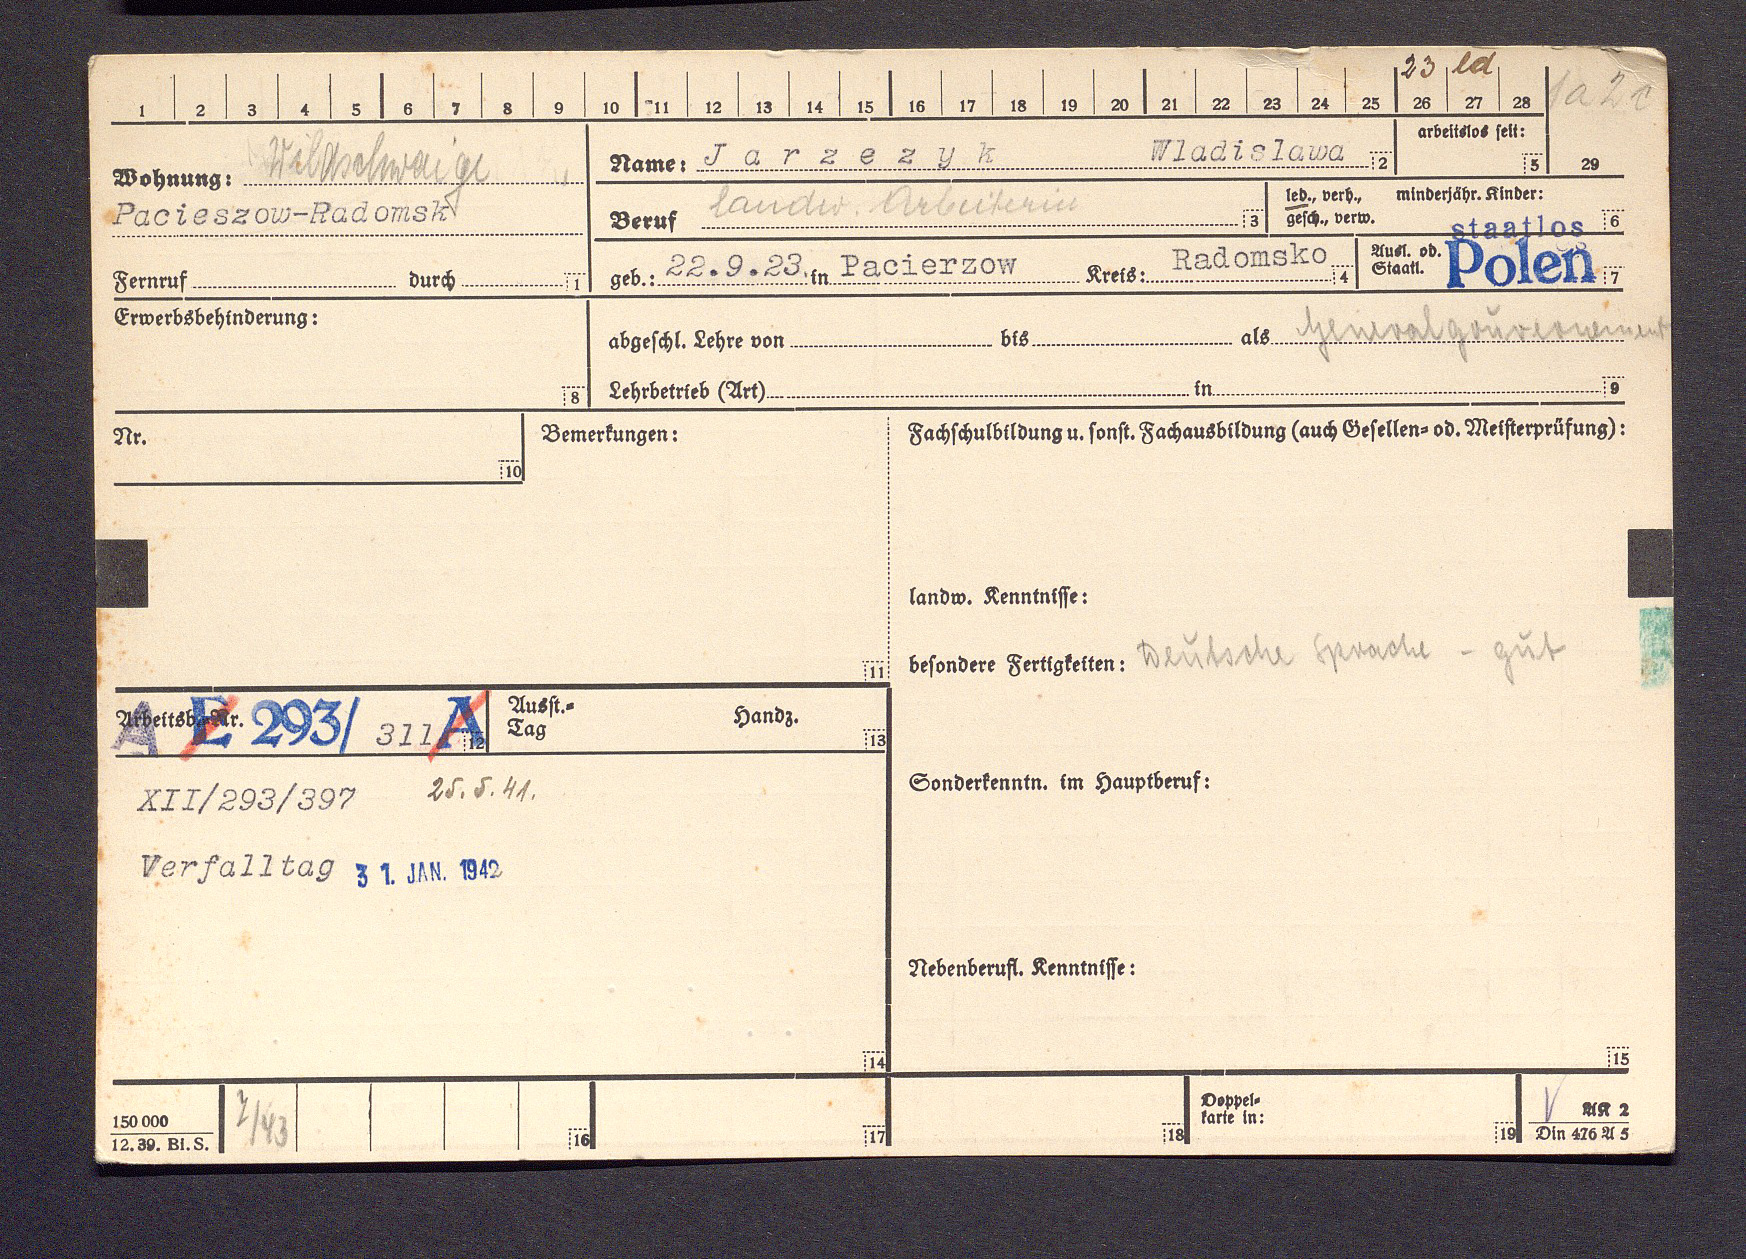 23 ld
1 2 3 4 5 6 7 8 9 10 11 12 13 14 15 16 17 18 19 20 21 22 23 24 25 26 27 28
1a 2c
arbeitslos seit:
5 29
Wohnung: Wildschwaige
Pacieszow-Radomsk
Name: Jarzezyk Wladislawa 2
Beruf landw. Arbeiterin 3
led., verh., minderjähr. Kinder:
gesch., verw. 6
Fernruf durch 1
geb.: 22.9.23. in Pacierzow Kreis: Radomsko 4
Ausl. od.
Staatl. staatlos
Polen 7
Erwerbsbehinderung:
8
abgeschl. Lehre von bis als Generalgouvernement
Lehrbetrieb (Art) in 9
Nr.
10
Bemerkungen:
11
Fachschulbildung u. sonst. Fachausbildung (auch Gesellen- od. Meisterprüfung):
landw. Kenntnisse:
besondere Fertigkeiten: Deutsche Sprache - gut
Arbeitsb.-Nr. A E 293/ 311 A 12
Ausst.-
Tag Handz. 13
XII/293/397 25.5.41.
Verfalltag 31. JAN. 1942
14
Sonderkenntn. im Hauptberuf:
Nebenberufl. Kenntnisse:
15
150 000
12. 39. Bl. S.
7/43
16
17
18
Doppel-
karte in:
19
V AK 2
Din 476 A 5